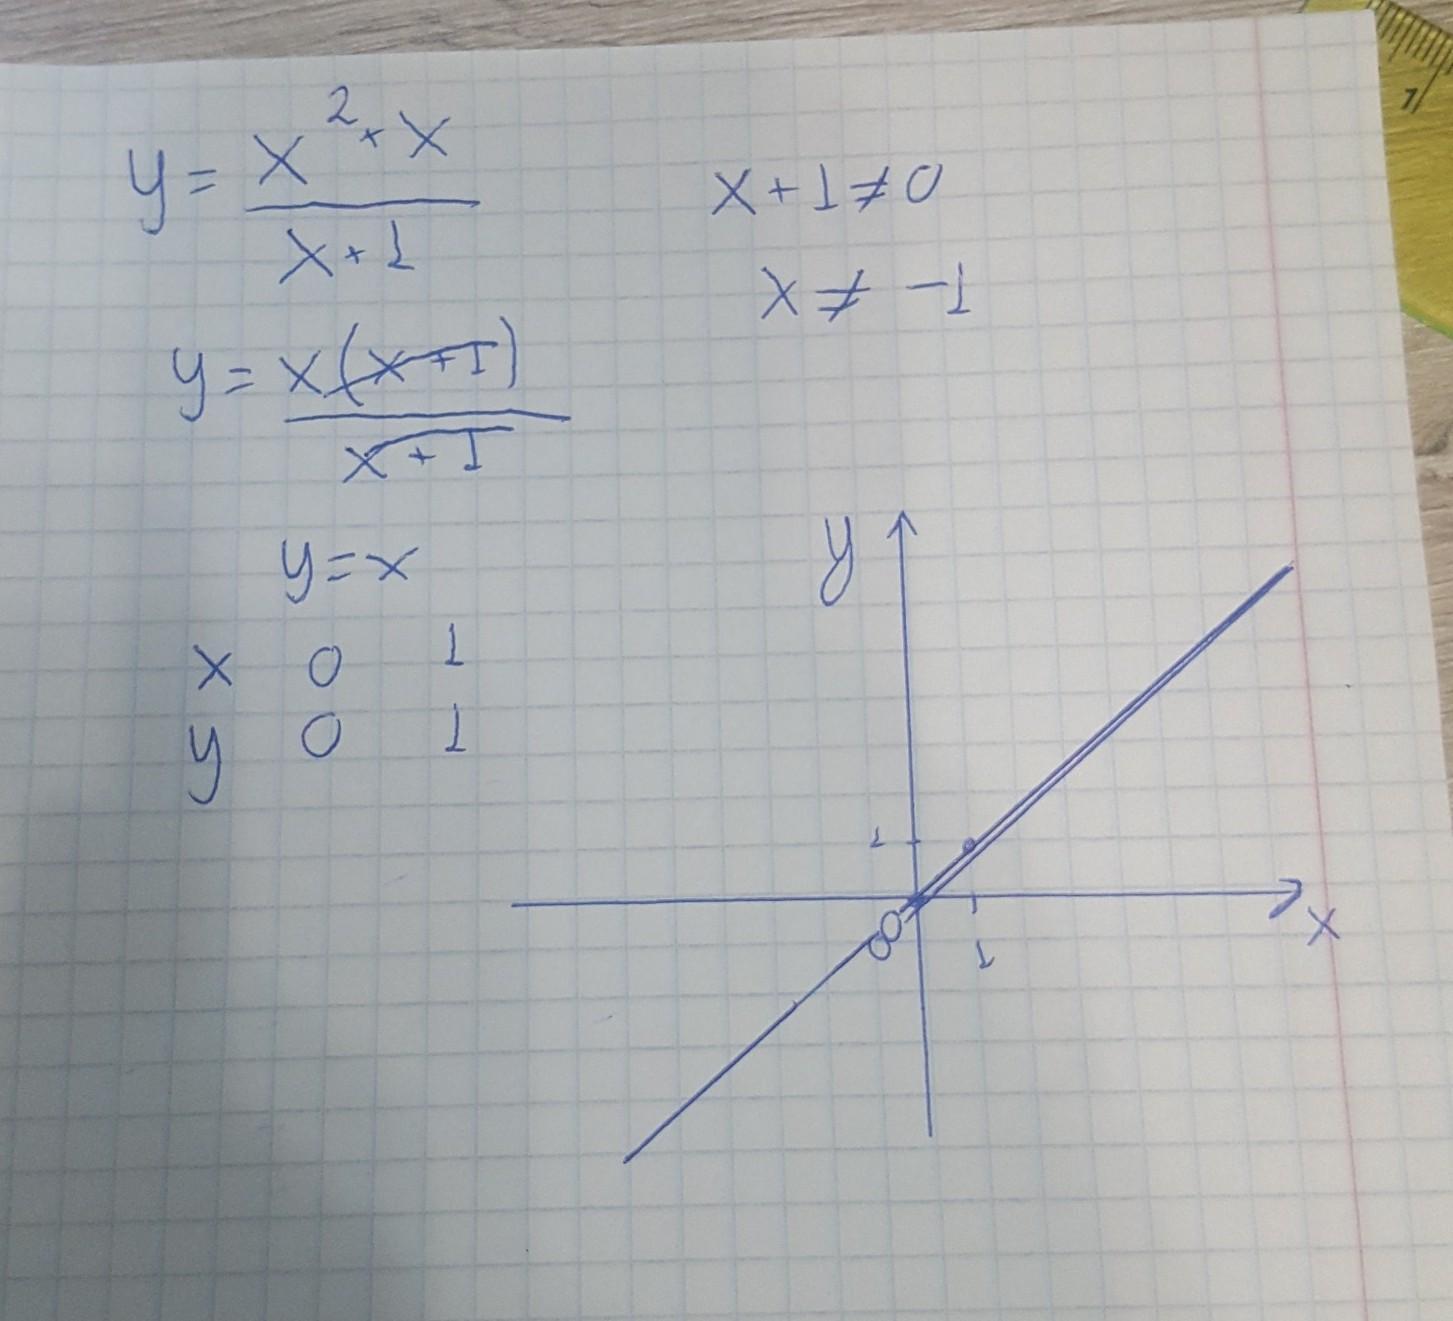 y = x² + x / x + 1
x + 1 ≠ 0
x ≠ -1
y = x(x + 1) / x + 1
y = x
x 0 1
y 0 1
y
1
x
1
1